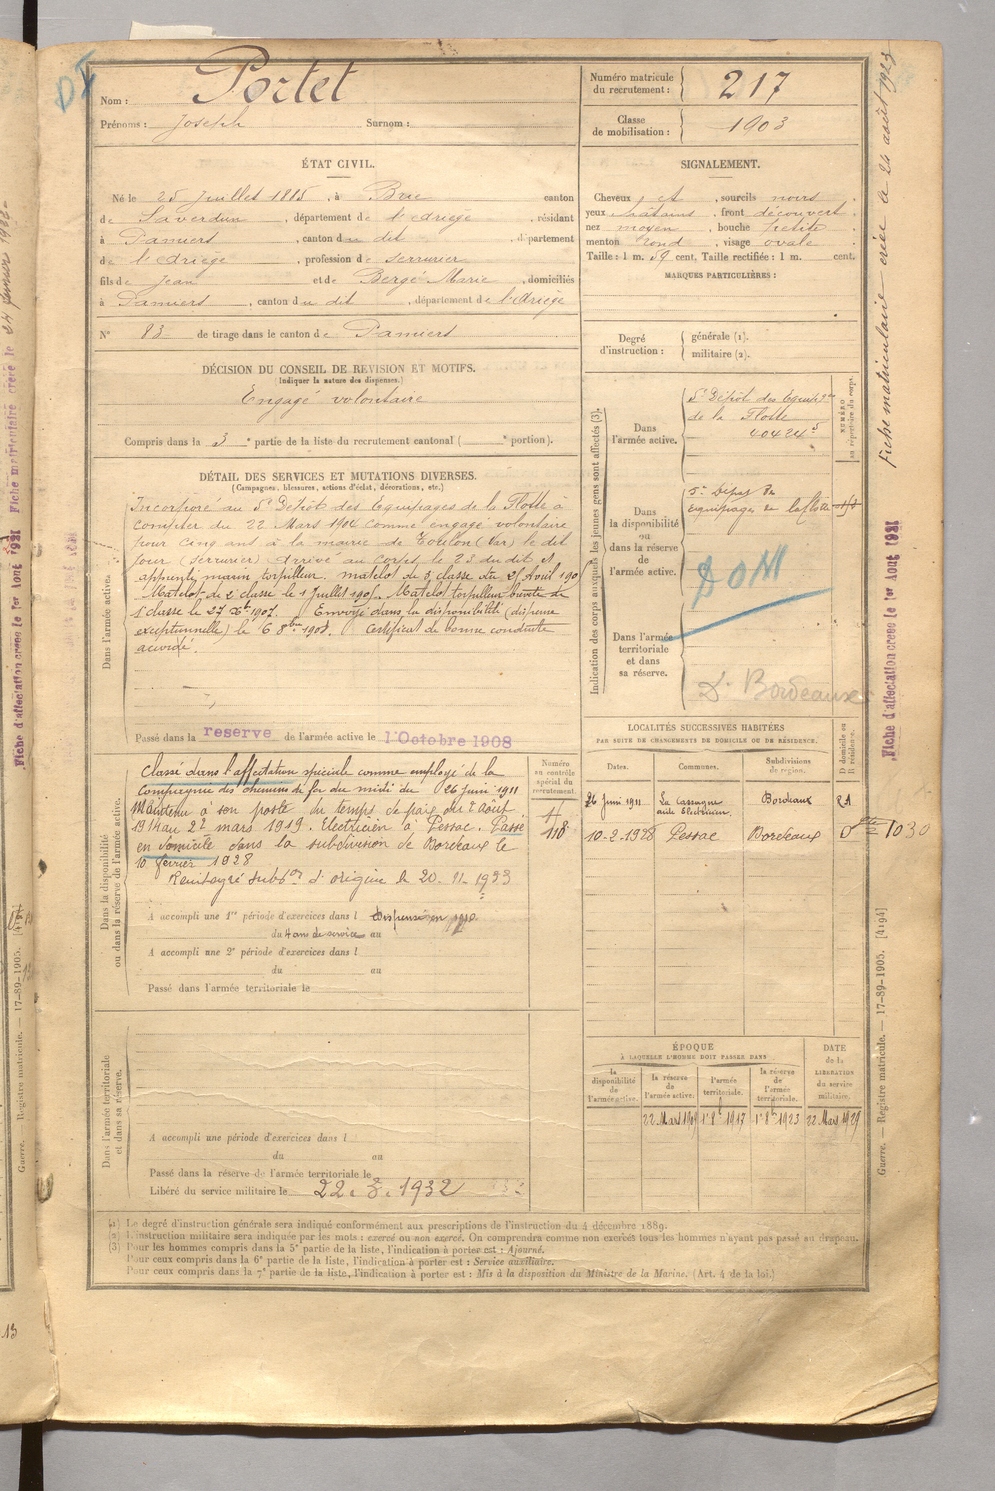 Nom : Portet
Prénoms : Joseph Surnom :
Numéro matricule du recrutement : 217
Classe de mobilisation : 1903
ÉTAT CIVIL.
Né le 25 Juillet 1885, à Brie canton
de Saverdun, département de l'Ariège, résidant
à Pamiers, canton du dit, département
de l'Ariège, profession de serrurier
fils de Jean et de Bergé Marie, domiciliés
à Pamiers, canton du dit, département de l'Ariège
N° 83 de tirage dans le canton de Pamiers
SIGNALEMENT.
Cheveux et, sourcils noirs.
yeux châtains, front découvert,
nez moyen, bouche petite
menton rond, visage ovale.
Taille : 1 m. 59 cent. Taille rectifiée : 1 m. cent.
MARQUES PARTICULIÈRES :
DÉCISION DU CONSEIL DE REVISION ET MOTIFS.
(Indiquer la nature des dispenses.)
Engagé volontaire
Compris dans la 3e partie de la liste du recrutement cantonal ( e portion).
Degré d'instruction :
générale (1).
militaire (2).
DÉTAIL DES SERVICES ET MUTATIONS DIVERSES.
(Campagnes, blessures, actions d'éclat, décorations, etc.)
Dans l'armée active.
Incorporé au 5e Dépôt des Equipages de la Flotte à
compter du 22 Mars 1904 comme engagé volontaire
pour cinq ans à la mairie de Toulon (Var) le dit
jour (serrurier) arrivé au corps le 23 du dit et
apprenti marin torpilleur. matelot de 3e classe du 25 Avril 190
Matelot de 2e classe le 1 Juillet 190 . Matelot torpilleur breveté de
1e classe le 27 Xbre 1907. Envoyé dans la disponibilité (dispense
exceptionnelle) le 6 8bre 1908. Certificat de bonne conduite
accordé.
Passé dans la reserve de l'armée active le 1 Octobre 1908
Indication des corps auxquels les jeunes gens sont affectés (3).
NUMÉRO au répertoire du corps.
Dans l'armée active.
5e Dépôt des Equip
de la Flotte
40424
Dans la disponibilité ou dans la réserve de l'armée active.
5e Dépot des
équipages de la flotte
DOM
Dans l'armée territoriale et dans sa réserve.
Bordeaux
Dans la disponibilité ou dans la réserve de l'armée active.
Classé dans l'affectation spéciale comme employé de la
Compagnie des chemins de fer du midi du 26 juin 1911
Maintenu à son poste du temps de paix du 2 Août
1914 au 22 mars 1919. Electricien à Pessac. Passé
en domicile dans la subdivision de Bordeaux le
10 février 1928
d'origine le 20.11.1933
Numéro au contrôle spécial du recrutement.
A accompli une 1re période d'exercices dans l Dispensé en
du 4 ans de service au
A accompli une 2e période d'exercices dans l
du au
Passé dans l'armée territoriale le
LOCALITÉS SUCCESSIVES HABITÉES
PAR SUITE DE CHANGEMENTS DE DOMICILE OU DE RÉSIDENCE.
Dates. Communes. Subdivisions de région. D domicile ou R résidence.
26 Juin 1911 Bordeaux
10-2-1928 Pessac Bordeaux 1030
ÉPOQUE
À LAQUELLE L'HOMME DOIT PASSER DANS
la disponibilité de l'armée active. la réserve de l'armée active. l'armée territoriale. la réserve de l'armée territoriale.
DATE de la LIBÉRATION du service militaire.
22 Mars 1909 1er 8bre 1917 1er 8bre 1923 22 Mars 1929
Dans l'armée territoriale et dans sa réserve.
A accompli une période d'exercices dans l
du au
Passé dans la réserve de l'armée territoriale le
Libéré du service militaire le 22.3.1932
(1) Le degré d'instruction générale sera indiqué conformément aux prescriptions de l'instruction du 4 décembre 1889.
(2) L'instruction militaire sera indiquée par les mots : exercé ou non exercé. On comprendra comme non exercés tous les hommes n'ayant pas passé au drapeau.
(3) Pour les hommes compris dans la 5e partie de la liste, l'indication à porter est : Ajourné.
Pour ceux compris dans la 6e partie de la liste, l'indication à porter est : Service auxiliaire.
Pour ceux compris dans la 7e partie de la liste, l'indication à porter est : Mis à la disposition du Ministre de la Marine. (Art. 4 de la loi.)
Fiche matriculaire créée le 24 août 1923
Fiche d'affectation créée le 1er Août 1931
Guerre. — Registre matricule. — 17-89-1905. [4194]